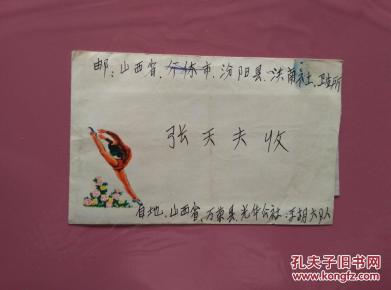 邮：山西省、介休市、汾阳县、洪南社、卫生所
张天夫收
自地、山西省、万荣县、光华公社、王胡六队
孔夫子旧书网
www.kongfz.com